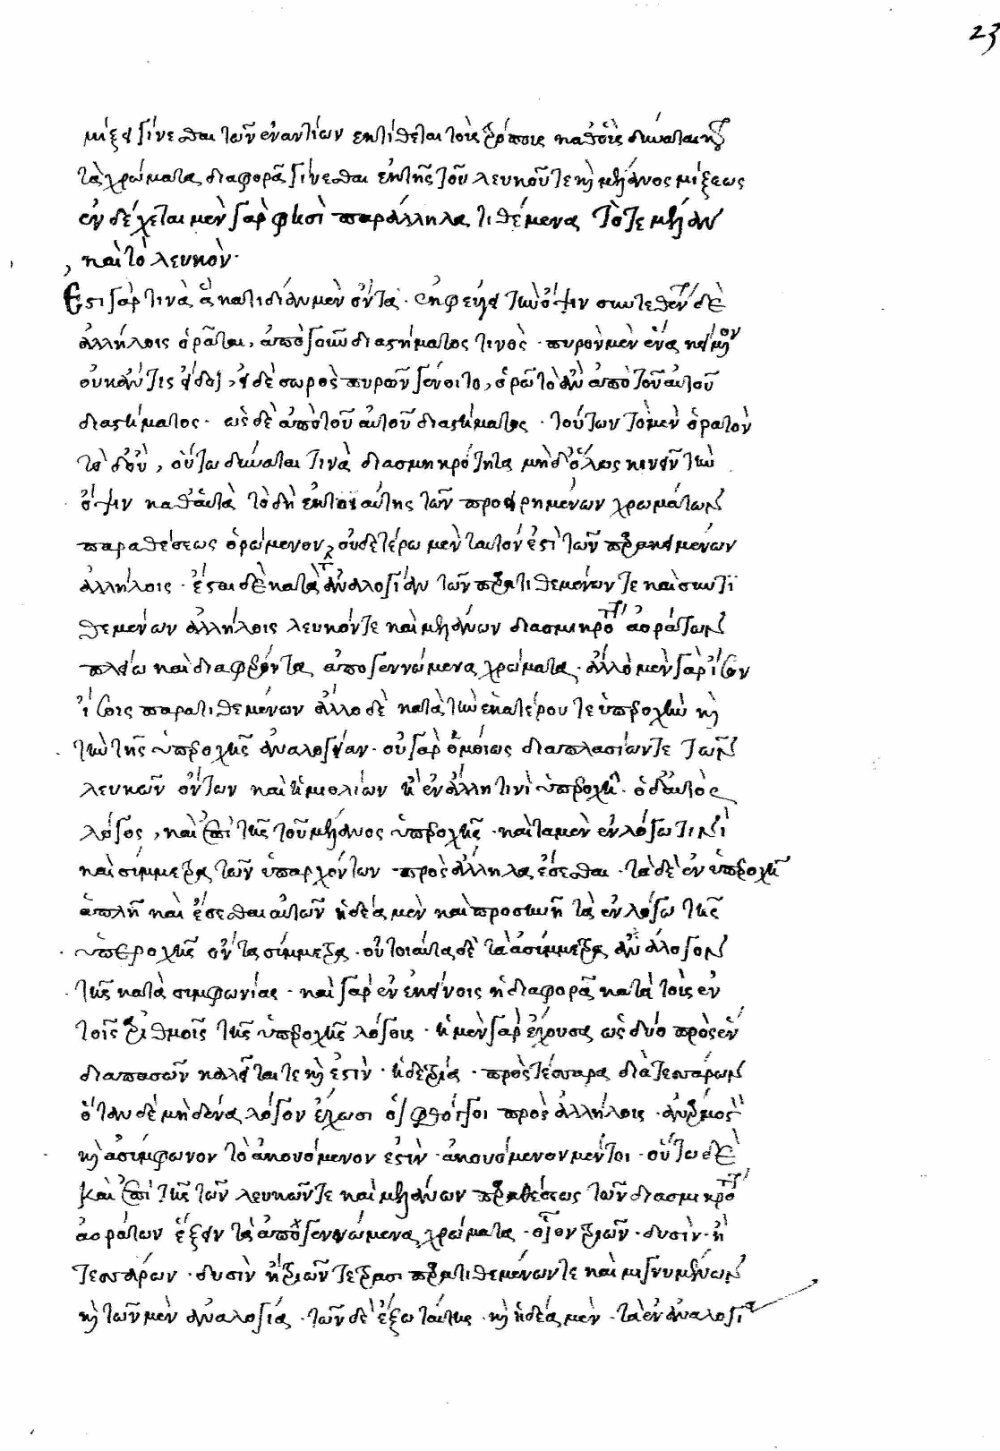 23
μίξει γίνεσθαι τῶν ἐναντίων ἐκτίθεται τοὺς τρόπους καθ' οὓς δύναται καὶ
τὰ χρώματα διαφορὰ γίνεσθαι ἐκ τῆς τοῦ λευκοῦ τε καὶ μέλανος μίξεως
ἐνδέχεται μὲν γὰρ φησὶ παράλληλα τιθέμενα τό τε μέλαν
καὶ τὸ λευκὸν·
Ἔστι γάρ τινὰ ἃ κατιδίαν μὲν ὄντα· ἐκφεύγει τὴν ὄψιν συντεθέντα δὲ
ἀλλήλοις ὁρᾶται, ἀπό γοῦν διαστήματος τινὸς· πυρὸν μὲν ἕνα κείμενον
οὐκ ἄν τις εἴδοι, εἰ δὲ σωρὸς πυρῶν γένοιτο, ὁρῶτο ἂν ἀπὸ τοῦ αὐτοῦ
διαστήματος· ὡς δὲ ἀπὸ τοῦ αὐτοῦ διαστήματος· τούτων τὸ μὲν ὁρατὸν
τὸ δ' οὒ, οὕτω δύναται τινὰ διὰ σμικρότητα μηδ' ὅλως κινεῖν τὴν
ὄψιν καθ' αὑτὰ τὸ δὴ ἐκ τοιαύτης τῶν προειρημένων χρωμάτων
παραθέσεως ὁρώμενον, οὐδετέρω μὲν ταυτόν ἐστὶ τῶν παρακειμένων
ἀλλήλοις· ἔσται δὲ κατὰ τὴν ἀναλογίαν τῶν παρατιθεμένων τε καὶ συντι
θεμένων ἀλλήλοις λευκόν τε καὶ μελάνων διὰ σμικρότητα ἀοράτων
πλείω καὶ διαφέροντα ἀπογεννώμενα χρώματα· ἄλλο μὲν γὰρ ἴσων
ἴσοις παρατιθεμένων ἄλλο δὲ κατὰ τὴν ἑκατέρου τε ὑπεροχὴν καὶ
τὴν τῆς ὑπεροχῆς ἀναλογίαν· οὐ γὰρ ὁμοίως διαπλασίων τε τῶν
λευκῶν ὄντων καὶ ἡμιολίων ἢ ἐν ἄλλη τινὶ ὑπεροχῇ· ὁ δ' αὐτὸς
λόγος, καὶ ἐπὶ τῆς τοῦ μέλανος ὑπεροχῆς· καὶ τὰ μὲν ἐν λόγω τινὶ
καὶ σύμμετρα τῶν ὑπαρχόντων πρὸς ἄλληλα ἔσεσθαι· τὰ δὲ ἐν ὑπεροχῇ
ἁπλῇ καὶ ἔσεσθαι αὐτῶν ἡδέα μὲν καὶ προσηνῆ τὰ ἐν λόγω τῆς
ὑπεροχῆς ὄντα σύμμετρα· οὐ τοιαῦτα δὲ τὰ ἀσύμμετρα ἀνάλογον
τῆς κατὰ συμφωνίας· καὶ γὰρ ἐν ἐκείνοις ἡ διαφορὰ κατὰ τοὺς ἐν
τοῖς ἀριθμοῖς τῆς ὑπεροχῆς λόγοις· ἡ μὲν γὰρ ἔχουσα ὡς δύο πρὸς ἓν
διαπασῶν καλεῖται τε καὶ ἐστὶν· ἡ δὲ τρία· πρὸς τέσσαρα διὰ τεσσάρων
ὅταν δὲ μηδένα λόγον ἔχωσι οἱ φθόγγοι πρὸς ἀλλήλοις· ἀνάρμοστον
καὶ ἀσύμφωνον τὸ ἀκουόμενον ἐστὶν· ἀκουόμενον μέντοι· οὕτω δὲ
καὶ ἐπὶ τῆς τῶν λευκῶν τε καὶ μελάνων παραθέσεως τῶν διὰ σμικρότητα
ἀοράτων ἕξειν τὰ ἀπογεννώμενα χρώματα· οἷον τριῶν· δυσὶν· ἢ
τεσσάρων· δυσὶν ἢ τριῶν τέτρασι παρατιθεμένων τε καὶ μιγνυμένων
καὶ τῶν μὲν ἀναλογία· τῶν δὲ ἔξω ταύτης· καὶ ἡδέα μὲν· τὰ ἐν ἀναλογία